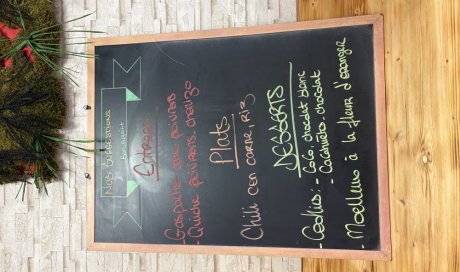 Nos suggestions
du moment
Entrées
- Gaspacho aux poivrons
- Quiche poivrons chorizo
Plats
Chili con carne, riz
DESSERTS
- Cookies: - Coco, chocolat blanc
- Cacahuètes, chocolat
- Moelleux à la fleur d'oranger